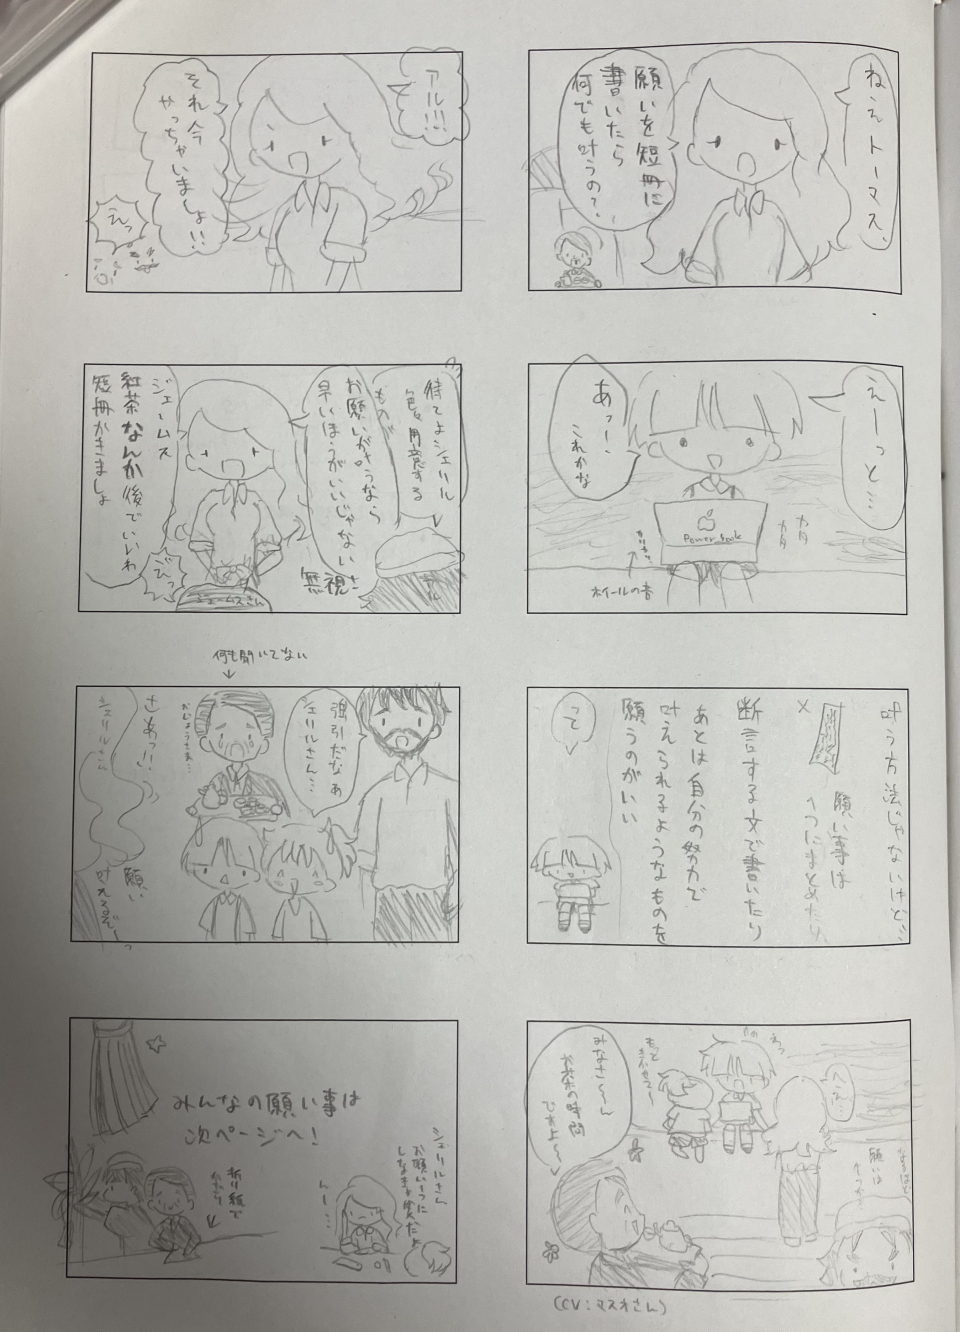 ねえトーマス、
願いを短冊に
書いたら
何でも叶うの?
えーっと…
あっー!
これかな
Power Book
カタ
カタ
ホイールの音
叶う方法じゃないけど…
願い事は
1つにまとめたり
×
断言する文で書いたり
あとは自分の努力で
叶えられるようなものを
願うのがいい
って
へぇ〜
なるほど
願いは
もっと
みなさ〜ん
お茶の時間
ですよ〜
(CV:マスオさん)
アル!!!
それ今
やっちゃいましょ!!
えっ
待てよシェリル
色々用意する
ものが
お願いが叶うなら
早いほうがいいじゃない!
無視
アル
ジェームス
紅茶なんか後でいいわ
短冊かきましょ
びっ
ジェームスさん
何も聞いてない
↓
強引だなぁ
シェリルさん…
おじょうさま…
さあっ!!
願い
叶えるぞーっ
シェリルさん
みんなの願い事は
次ページへ!
折り紙で
シェリルさん
お願い1つに
しなきゃダメだよ
んー…